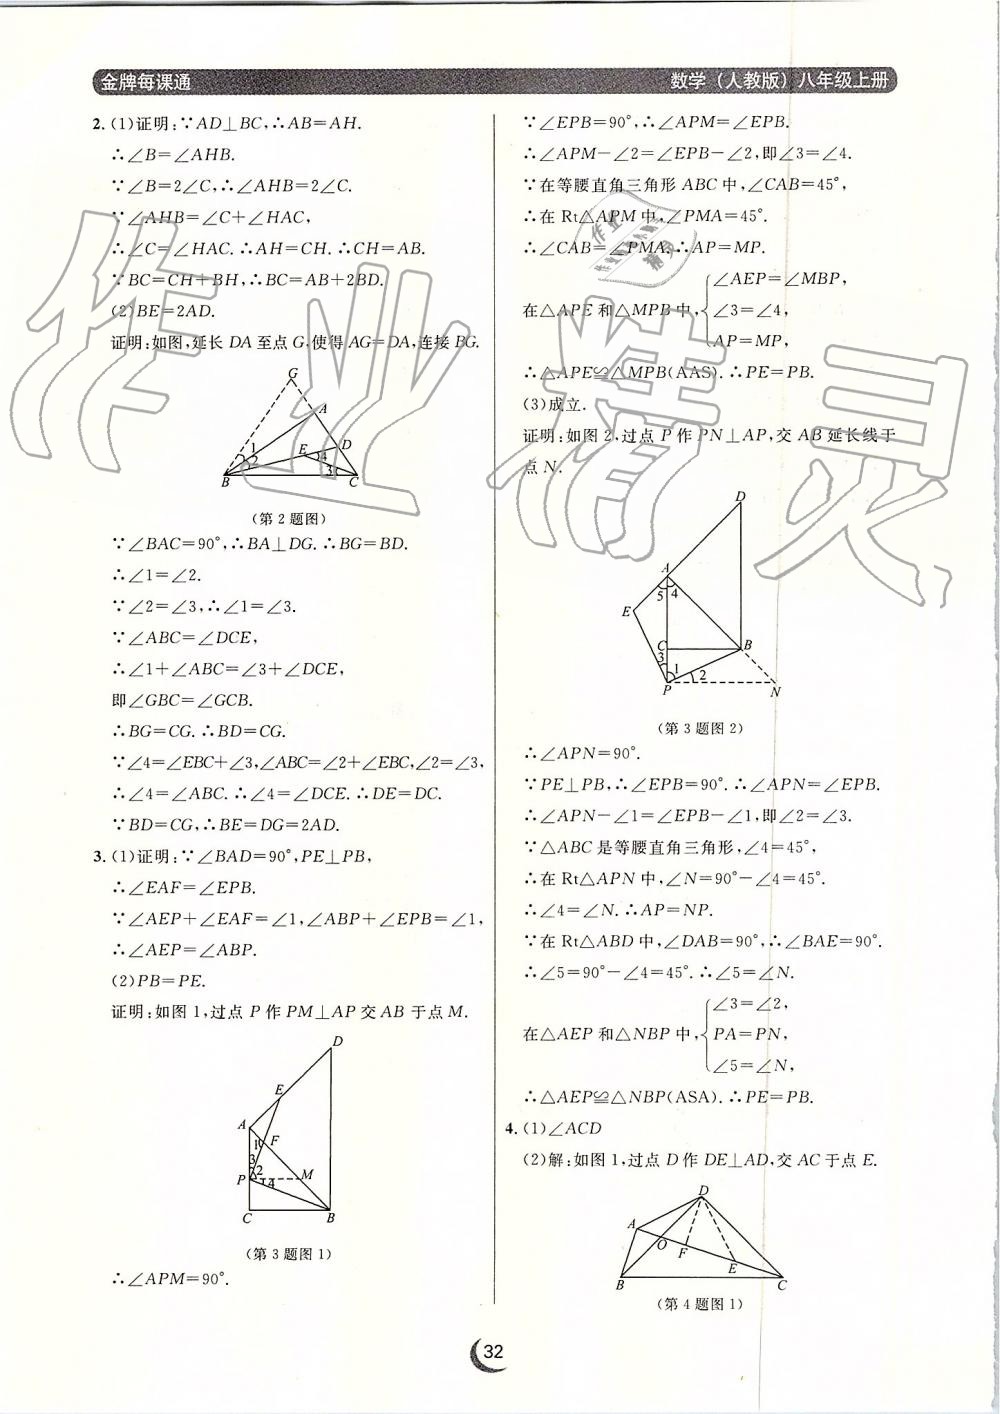 金牌每课通
数学(人教版)八年级上册
2.(1)证明:∵AD⊥BC,∴AB=AH.
∴∠B=∠AHB.
∵∠B=2∠C,∴∠AHB=2∠C.
∵∠AHB=∠C+∠HAC,
∴∠C=∠HAC.∴AH=CH.∴CH=AB.
∵BC=CH+BH,∴BC=AB+2BD.
(2)BE=2AD.
证明:如图,延长DA至点G,使得AG=DA,连接BG.
G
A
D
E
1
2
4
3
B
C
(第2题图)
∵∠BAC=90°,∴BA⊥DG.∴BG=BD.
∴∠1=∠2.
∵∠2=∠3,∴∠1=∠3.
∵∠ABC=∠DCE,
∴∠1+∠ABC=∠3+∠DCE,
即∠GBC=∠GCB.
∴BG=CG.∴BD=CG.
∵∠4=∠EBC+∠3,∠ABC=∠2+∠EBC,∠2=∠3,
∴∠4=∠ABC.∴∠4=∠DCE.∴DE=DC.
∵BD=CG,∴BE=DG=2AD.
3.(1)证明:∵∠BAD=90°,PE⊥PB,
∴∠EAF=∠EPB.
∵∠AEP+∠EAF=∠1,∠ABP+∠EPB=∠1,
∴∠AEP=∠ABP.
(2)PB=PE.
证明:如图1,过点P作PM⊥AP交AB于点M.
D
E
A
1
F
3
2
P
4
M
C
B
(第3题图1)
∴∠APM=90°.
∵∠EPB=90°,∴∠APM=∠EPB.
∴∠APM-∠2=∠EPB-∠2,即∠3=∠4.
∵在等腰直角三角形ABC中,∠CAB=45°,
∴在Rt△APM中,∠PMA=45°.
∴∠CAB=∠PMA.∴AP=MP.
∠AEP=∠MBP,
在△APE和△MPB中,{∠3=∠4,
AP=MP,
∴△APE≌△MPB(AAS).∴PE=PB.
(3)成立.
证明:如图2,过点P作PN⊥AP,交AB延长线于
点N.
D
A
5
4
E
C
B
3
1
2
P
N
(第3题图2)
∴∠APN=90°.
∵PE⊥PB,∴∠EPB=90°.∴∠APN=∠EPB.
∴∠APN-∠1=∠EPB-∠1,即∠2=∠3.
∵△ABC是等腰直角三角形,∠4=45°,
∴在Rt△APN中,∠N=90°-∠4=45°.
∴∠4=∠N.∴AP=NP.
∵在Rt△ABD中,∠DAB=90°,∴∠BAE=90°.
∴∠5=90°-∠4=45°.∴∠5=∠N.
∠3=∠2,
在△AEP和△NBP中,{PA=PN,
∠5=∠N,
∴△AEP≌△NBP(ASA).∴PE=PB.
4.(1)∠ACD
(2)解:如图1,过点D作DE⊥AD,交AC于点E.
D
A
O
F
E
B
C
(第4题图1)
32
作业精灵